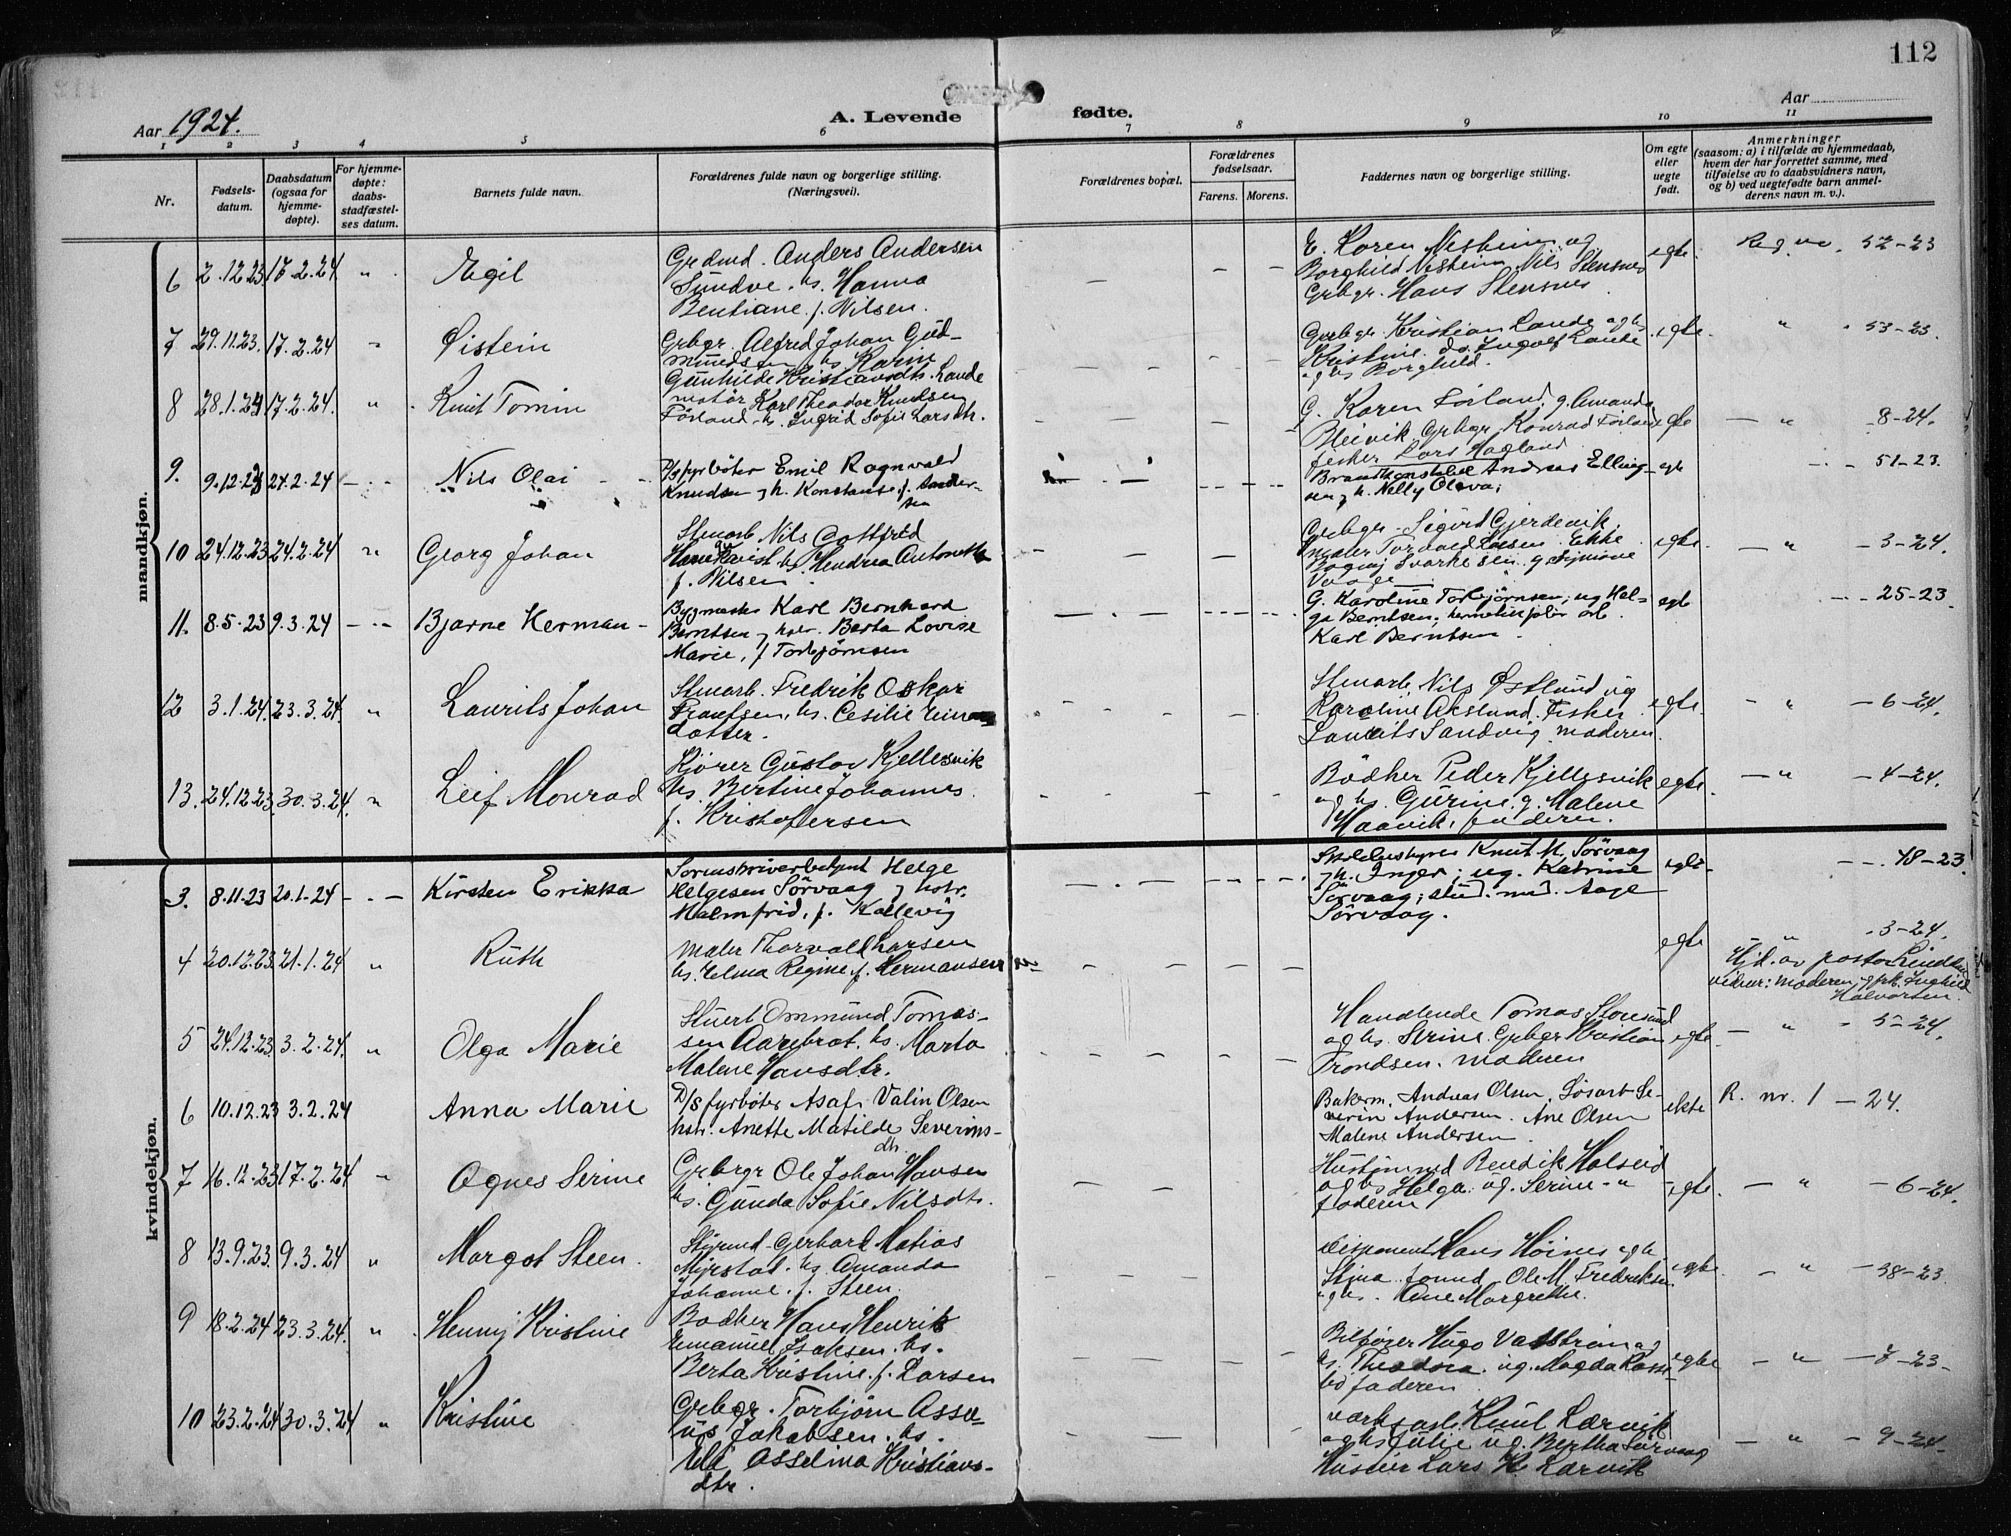 112
Aar 1924.
A. Levende fødte.
Aar
1 2 3 4 5 6 7 8 9 10 11
Nr.
Fødsels-
datum.
Daabsdatum
(ogsaa for
hjemme-
døpte).
For hjemme-
døpte:
daabs-
stadfæstel-
ses datum.
Barnets fulde navn.
Forældrenes fulde navn og borgerlige stilling.
(Næringsvei).
Forældrenes bopæl.
Forældrenes
fødselsaar.
Farens. Morens.
Faddernes navn og borgerlige stilling.
Om egte
eller
uegte
født.
Anmerkninger
(saasom: a) i tilfælde av hjemmedaab,
hvem der har forrettet samme, med
tilføielse av to daabsvidners navn,
og b) ved uegtefødte barn anmel-
derens navn m. v.).
mandkjøn.
6 2.12.23 17.2.24 " Egil
Anders Andersen
Sundve. hs. Hanna
Bentiane f. Nilsen.
E. Karen Nesheim og
Borghild Nesheim Nils Stensnes
Grbgr. Hans Stensnes
egte Reg. no. 52-23
7 29.11.23. 17.2.24 " Øistein
Grbgr. Alfred Johan Gud-
mundsen hs Karen
Gunhilde Kristiansdtr. Lande
Grbgr. Kristian Lande og hs
Kristine. do. Ingolf Lande
og hs Borghild.
egte. " 53-23.
8 28.1.24 17.2.24. " Knut Tomin
matør Karl Theodor Knudsen
Førland. hs. Ingrid Sofie Larsdtr.
G. Karen Førland, g. Amanda
Bleivik. Grbgr. Konrad Førland
fisker Lars Hagland
egte — " 8-24.
9. 9.12.23 24.2.24 — Nils Olai
D/s fyrbøter Emil Ragnvald
Knudsen og h. Konstanse f. Ander-
sen
Brandkonstabel Andreas Elling-
sen og h. Nelly Oleva;
egte 51-23.
10 24.12.23 24.2.24 " Georg Johan
Stuarb. Nils Gottfred
hs Hendrea Antonette
f. Nilsen.
Grbgr. Sigurd Gjerdevik.
maler Torvald Larsen. Ekke
Vaage
egte. — " — 3-24.
11. 8.5.23 9.3.24 — Bjarne Herman —
Bygmester Karl Bernhard
Berntsen og hstr. Berta Lovise
Marie, f. Torbjørnsen
G. Karoline Torbjørnsen; ug Hel-
ga Berntsen; hermetikfabr. arb.
Karl Berntsen.
egte 25-23.
12 3.1.24. 23.3.24. " Laurits Johan
Stuarb. Fredrik Oskar
hs. Cesilie Einars-
datter.
Stuarb. Nils Østlund og
Karoline Akslund. Fisker
Laurits Sandvig. moderen.
egte. — " — 6-24.
13. 24.12.23. 30.3.24. " Leif Monrad
Kjører Gustav Kjellesvik
hs. Bertine Johannes.
f. Kristofersen
Bødker Peder Kjellesvik
og hs. Gurine. g. Malene
Haavik. faderen.
egte. — " — 4-24.
kvindekjøn.
3. 8.11.23 20.1.24 — Kirsten Erikka
Sorenskriverbetjent Helge
Helgesen Sørvaag og hstr.
Malmfrid, f. Kallevig
Skoledestyrer Knut M. Sørvaag
og h. Inger; ug. Katrine
Sørvaag; stud. med. Aage
Sørvaag.
egte 48-23.
4 20.12.23. 21.1.24 " Ruth
Maler Thorvald Larsen
hs. Elma Regine f. Hermansen
egte " 3-24.
Hjd. av pastor
vidner: moderen og frk. Inghild
Halvorsen.
5 24.12.23. 3.2.24. " Olga Marie
Stuert Ommund Tomas-
sen Aarebrot. hs. Marta
Malene Hansdtr.
Handlende Tomas Storesund
og hs. Serine. Grbgr Kristian
Trondsen. moderen
egte. — " 5-24.
6 10.12.23 3.2.24 Anna Marie
D/s fyrbøter Asaf Valin Olsen
hstr. Anette Matilde Severins-
dtr.
Bakerm. Andreas Olsen, Løsarb Se-
verin Andersen. Ane Olsen
Malene Andersen.
ekte R. nr. 1 — 24.
7 16.12.23 17.2.24 " Agnes Serine
Grbrgr Ole Johan Hansen
hs. Gunda Sofie Nilsdtr.
Hustømmd Bendik Halseid
og hs Helga. ug. Serine "
faderen
egte. — " — 6-24.
8 13.9.23. 9.3.24 " Margot Steen.
Styrmd. Gerhard Matias
Myrstad. hs. Amanda
Johanne. f. Steen.
Disponent Hans Høines og h.
Stina. formd. Ole M. Fredriksen
og hs. Ane Margrethe.
egte. — " — 38-23.
9 18.2.24 23.3.24. " Henny Kristine
Bødker Hans Henrik
Emanuel Isaksen. hs.
Berta Kristine. f. Larsen
Bilfører Hugo Vasstrøm og
hs. Theodora. ug. Magda
faderen.
egte — " — 7-23-
10 23.2.24 30.3.24 " Kristine
Grbgr. Torbjørn Asse-
us Jakobsen. hs.
Asseline Kristians-
dtr.
Knut Lærvik
og hs Julie ug. Bertha Sørvaag
Lars K Lærvik
— " — 9-24-